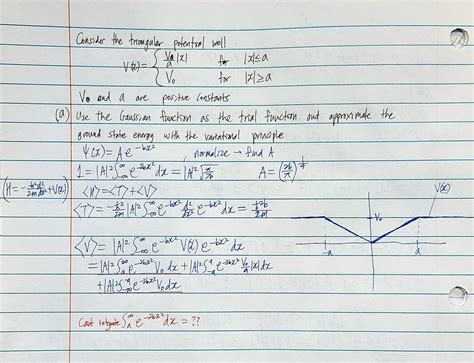 Consider the triangular potential well
V(x) = { V₀/a |x| for |x| ≤ a
V₀ for |x| ≥ a
V₀ and a are positive constants
(a) Use the Gaussian function as the trial function and approximate the
ground state energy with the variational principle
Ψ(x) = A e^{-bx²}, normalize → find A
1 = |A|² ∫_{-∞}^{∞} e^{-2bx²} dx = |A|² √(π/2b) A = (2b/π)^{1/4}
(H = -ħ²/2m d²/dx² + V(x)) <H> = <T> + <V>
<T> = -ħ²/2m |A|² ∫_{-∞}^{∞} e^{-bx²} d²/dx² e^{-bx²} dx = ħ²b/2m
V(x)
V₀
-a
a
<V> = |A|² ∫_{-∞}^{∞} e^{-bx²} V(x) e^{-bx²} dx
= |A|² ∫_{a}^{∞} e^{-2bx²} V₀ dx + |A|² ∫_{-a}^{a} e^{-2bx²} V₀/a |x| dx
+ |A|² ∫_{-∞}^{-a} e^{-2bx²} V₀ dx
Cant integrate ∫_{a}^{∞} e^{-2bx²} dx = ??